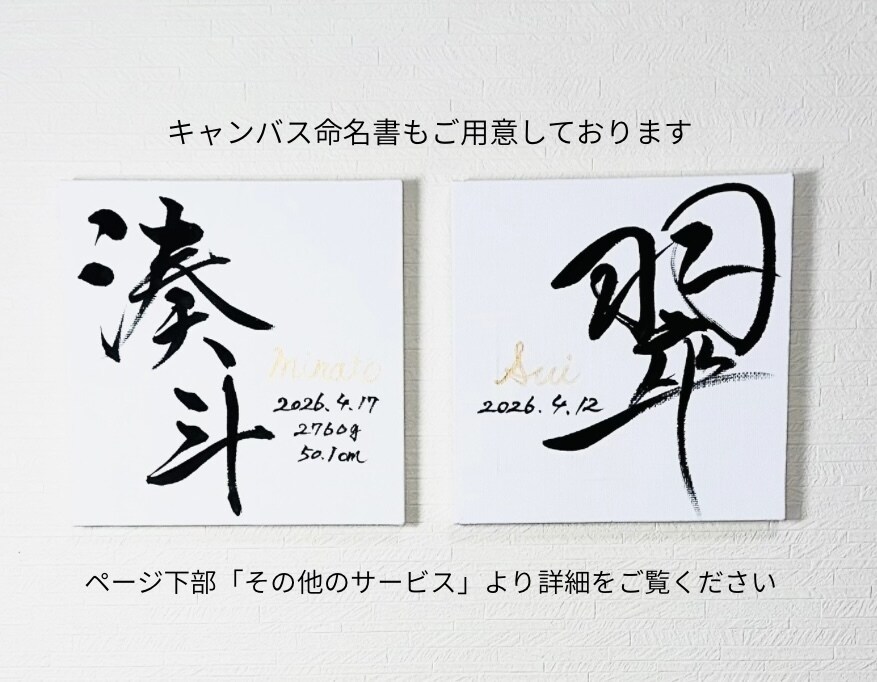 キャンバス命名書もご用意しております
湊斗
Minato
2026.4.17
2760g
50.1cm
翠
Sui
2026.4.12
ページ下部「その他のサービス」より詳細をご覧ください